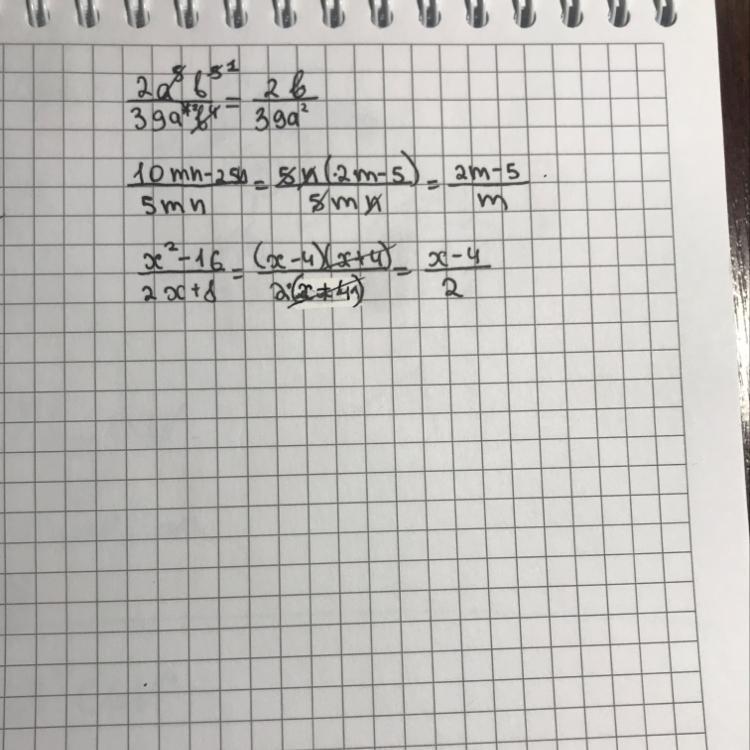 2a⁸b⁵ ¹ / 39a b⁴ = 2b / 39a²
10mn-25n / 5mn = 5n(2m-5) / 5mn = 2m-5 / m
x²-16 / 2x+8 = (x-4)(x+4) / 2(x+4) = x-4 / 2